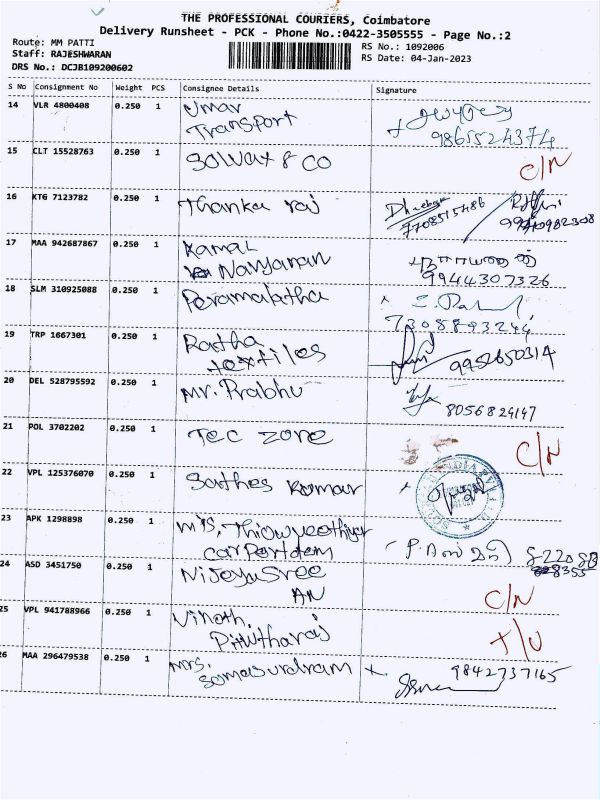 THE PROFESSIONAL COURIERS, Coimbatore
Delivery Runsheet - PCK - Phone No.:0422-3505555 - Page No.:2
Route: MM PATTI
Staff: RAJESHWARAN
DRS No.: DCJB109200602
RS No.: 1092006
RS Date: 04-Jan-2023
S No Consignment No Weight PCS Consignee Details Signature
14 VLR 4800408 0.250 1 Umar
Transport
9865524374
15 CLT 15528763 0.250 1 Solvat & CO C/N
16 KTG 7123782 0.250 1 Thanka raj
7708515486
17 MAA 942687867 0.250 1 Kamal
Narayanan
9944307326
18 SLM 310925088 0.250 1 Peramalatha
19 TRP 1667301 0.250 1 Ratha
textiles 9952650314
20 DEL 528795592 0.250 1 Mr. Prabhu
8056824147
21 POL 3702202 0.250 1 Tec zone C/N
22 VPL 125376070 0.250 1 Sathes Kumar
23 APK 1298898 0.250 1 M/s.
24 ASD 3451750 0.250 1 Nijayasree
AN C/N
25 VPL 941788966 0.250 1 Vinoth. T/U
26 MAA 296479538 0.250 1 Mrs.
Somasundram 9842737165